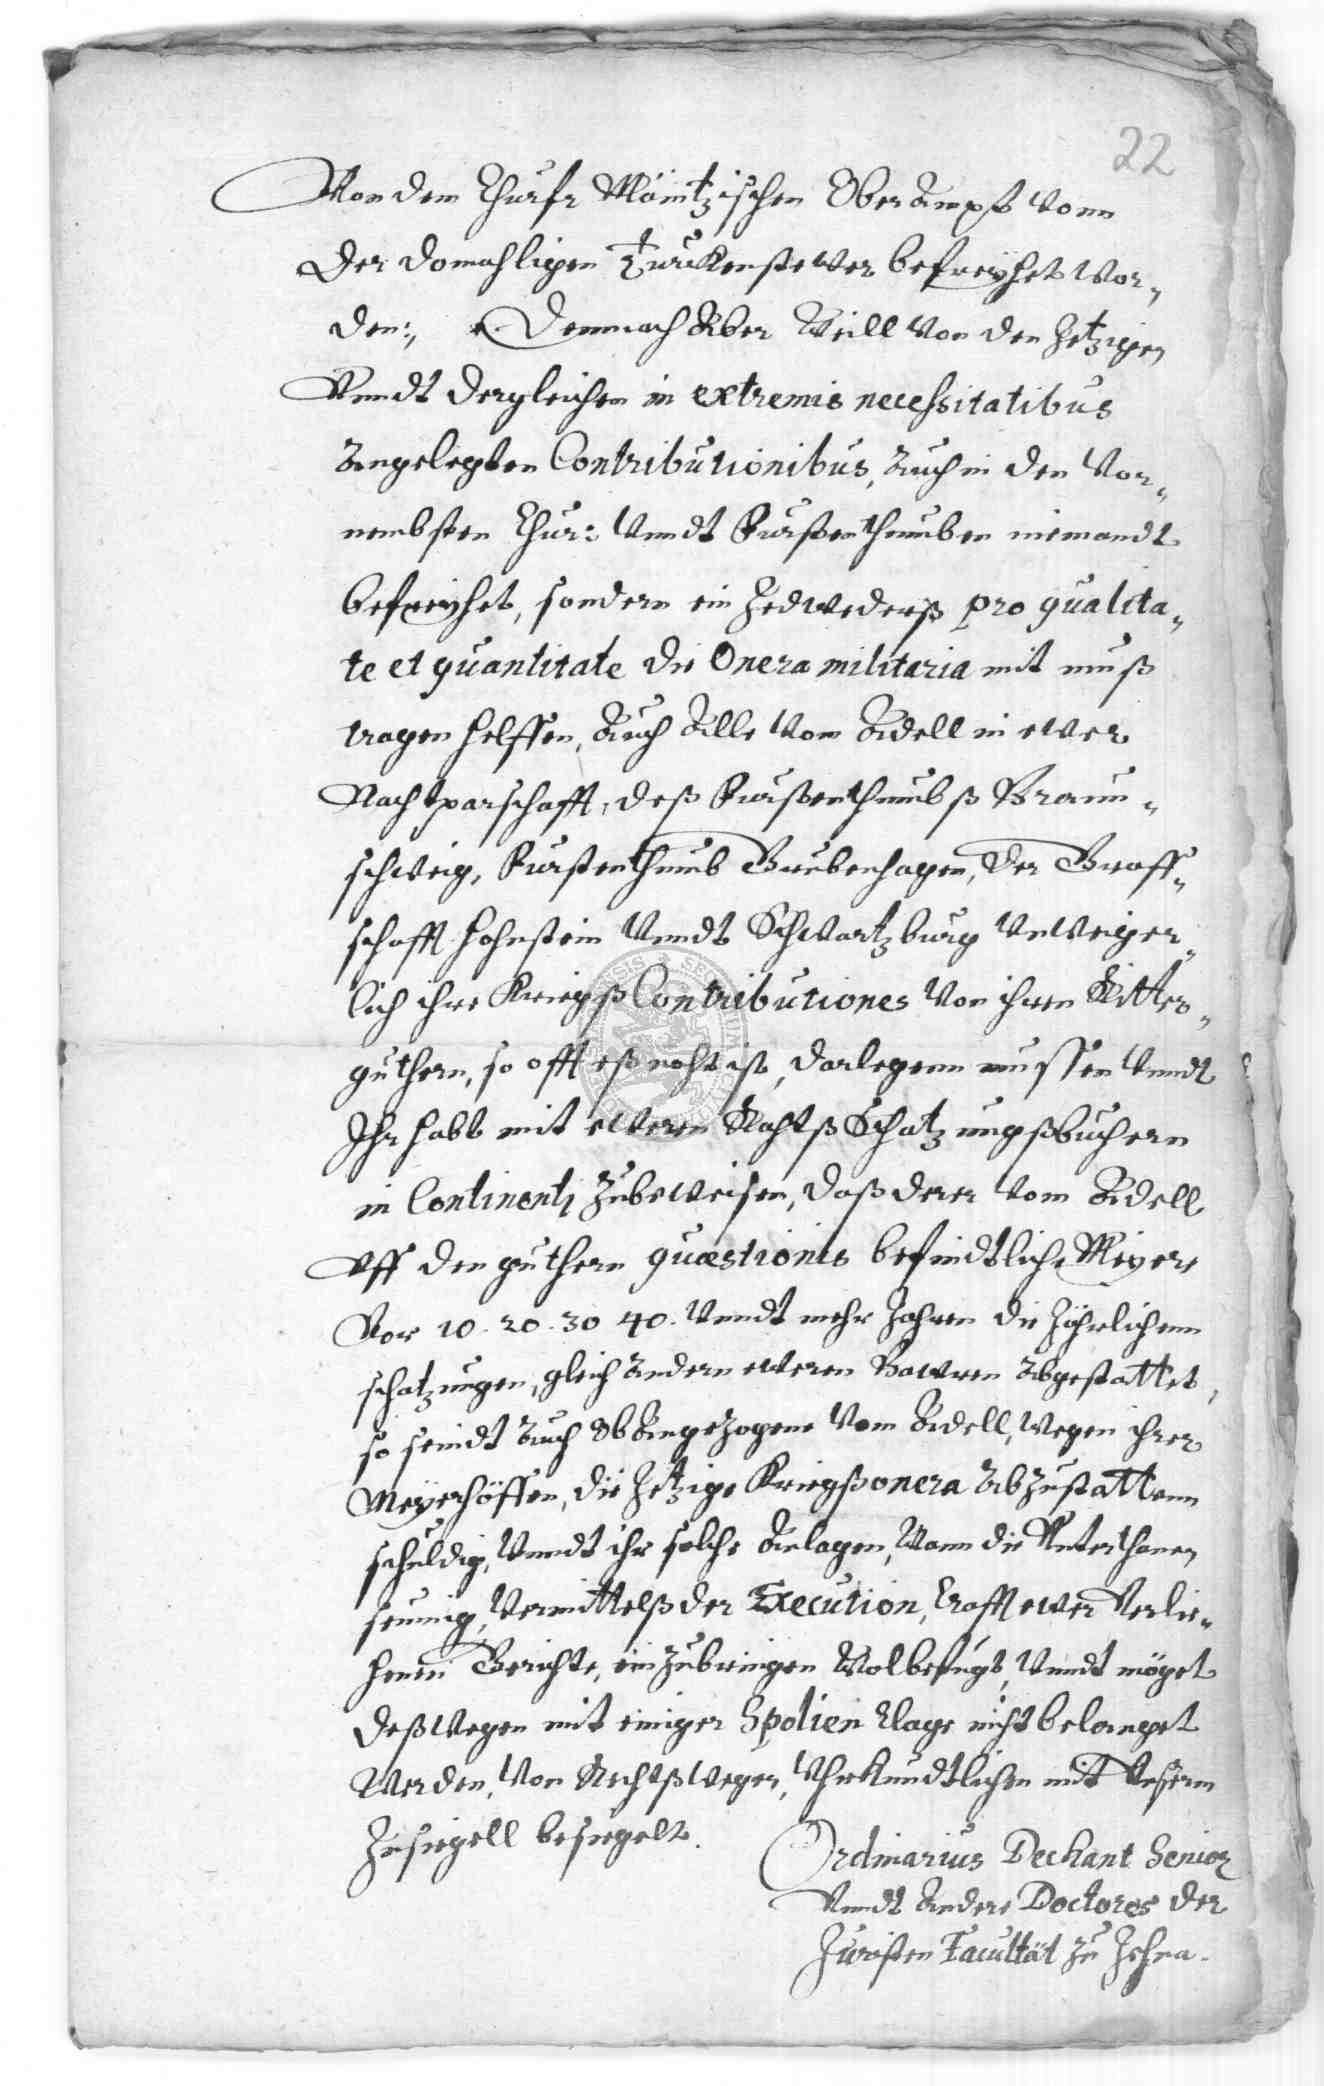 22
Von dem Churfr Maintzischen Ober Ampt vonn
der domahligen Turckenstewer befreyhet wor„
den:, Demnach aber Weill von den Jetzigen
Vnndt dergleichen in extremis necessitatibus
angelegten Contributionibus, auch in den Vor„
nembsten Chur: Vnndt Furstenthumben niemandt
befreyhet, sondern ein Jedweders pro qualita„
te et quantitate die Onera militaria mit muß
tragen helffen, Auch Alle vom Adell in ewer
Nachtparschafft, deß Furstenthumbß Braun„
schweig, Furstenthumb Grubenhagen, der Graff„
schafft Hohnstein Vnndt Schwartzburg Vnweiger„
lich ihre Kriegß Contributiones von ihren Ritter„
guthern, so offt eß noht ist, darlegenn mussen Vnndt
Ihr habt mit eweren Rahtß Schatzungßbuchern
in Continenti zubeweisen, daß derer vom Adell
Vff den guthern quæstionis befindtliche Meyere
Vor 10. 20. 30 40. Vnndt mehr Jahren die Jährlichenn
schatzungen, gleich andern eweren Bawren abgestattet,
so seindt auch ob Angezogene vom Adell, wegen ihrer
Meyerhöffen, die Jetzige Kriegßonera abzustattenn
schuldig, Vnndt ihr solche Anlagen, Wann die Vnterthanen
seumig, Vermittelß der Execution, Crafft ewer Verlie„
henen Gerichte, einzubringen Wolbefugt, Vnndt möget
deßwegen mit einiger Spolien Clage nicht belanget
Werden, Von Rechtßwegen, Vhrkundtlichen mit Vnserm
Insiegell besiegelt.
Ordinarius Dechant Senior
Vnndt Andere Doctores der
Juristen Facultät zu Jehna.